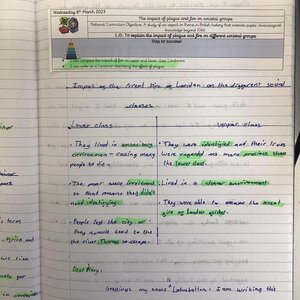 Wednesday 8th March 2023
The impact of plague and fire on societal groups
National Curriculum Objective: A study of an aspect or theme in British history that extends pupils' chronological
knowledge beyond 1066
L.O: To explain the impact of plague and fire on different societal groups.
Steps to success
I can compare the impact of fire on upper and lower class Londoners
I can write as a Londoner describing the effect of plague
Impact of the Great Fire of London on the different social
classes
Lower class
Upper class
• They lived in unsanitary
environment - causing many
people to die.
• They were identified and their lives
were regarded as more precious than
the lower class.
• The poor were irrelevant
so that means they didn't
need identifying.
Lived in a cleaner environment.
• They were able to escape the great
fire of London quicker.
• People left the city or
they would head to the
the river Thames to escape.
Dear diary,
Greetings my name is I am writing this